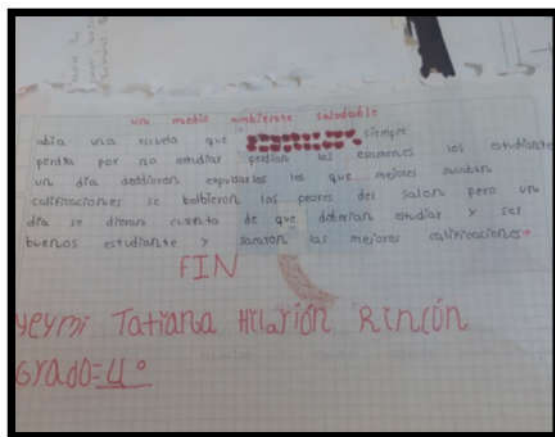 un medio ambiente saludable
abia una escuela que siempre
perdia por no estudiar perdian los examenes los estudiantes
un dia desidieron expulsarlos los que mejores sacaban
calificaciones se bolbieron los peores del salon pero un
dia se dieron cuenta de que deberian estudiar y ser
buenos estudiante y sacaron las mejores calificaciones
FIN
Yeymi Tatiana Hilarión Rincón
Grado=4°